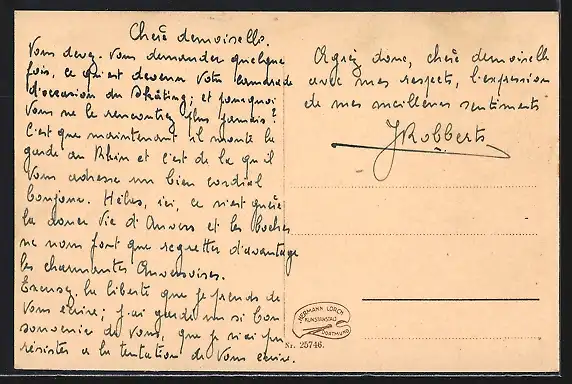 Chère demoiselle.
Vous devez vous demander quelque
fois, ce qu'est devenu votre camarade
d'occasion du Skating; et pourquoi
Vous ne le rencontrez plus jamais?
C'est que maintenant il monte la
garde au Rhin et c'est de la qu'il
Vous adresse un bien cordial
bonjour. Hélas, ici, ce n'est guère
la douce vie d'Anvers et les boches
ne nous font que regretter d'avantage
les charmantes Anversoises.
Excusez la liberté que je prends de
Vous écrire; j'ai gardé un si bon
souvenir de vous, que je n'ai pu
résister a la tentation de Vous écrire.
Agréez donc, chère demoiselle
avec mes respects, l'expression
de mes meilleures sentiments
J Robberts
HERMANN LORCH
KUNSTANSTALT
DORTMUND
Nr. 25746.